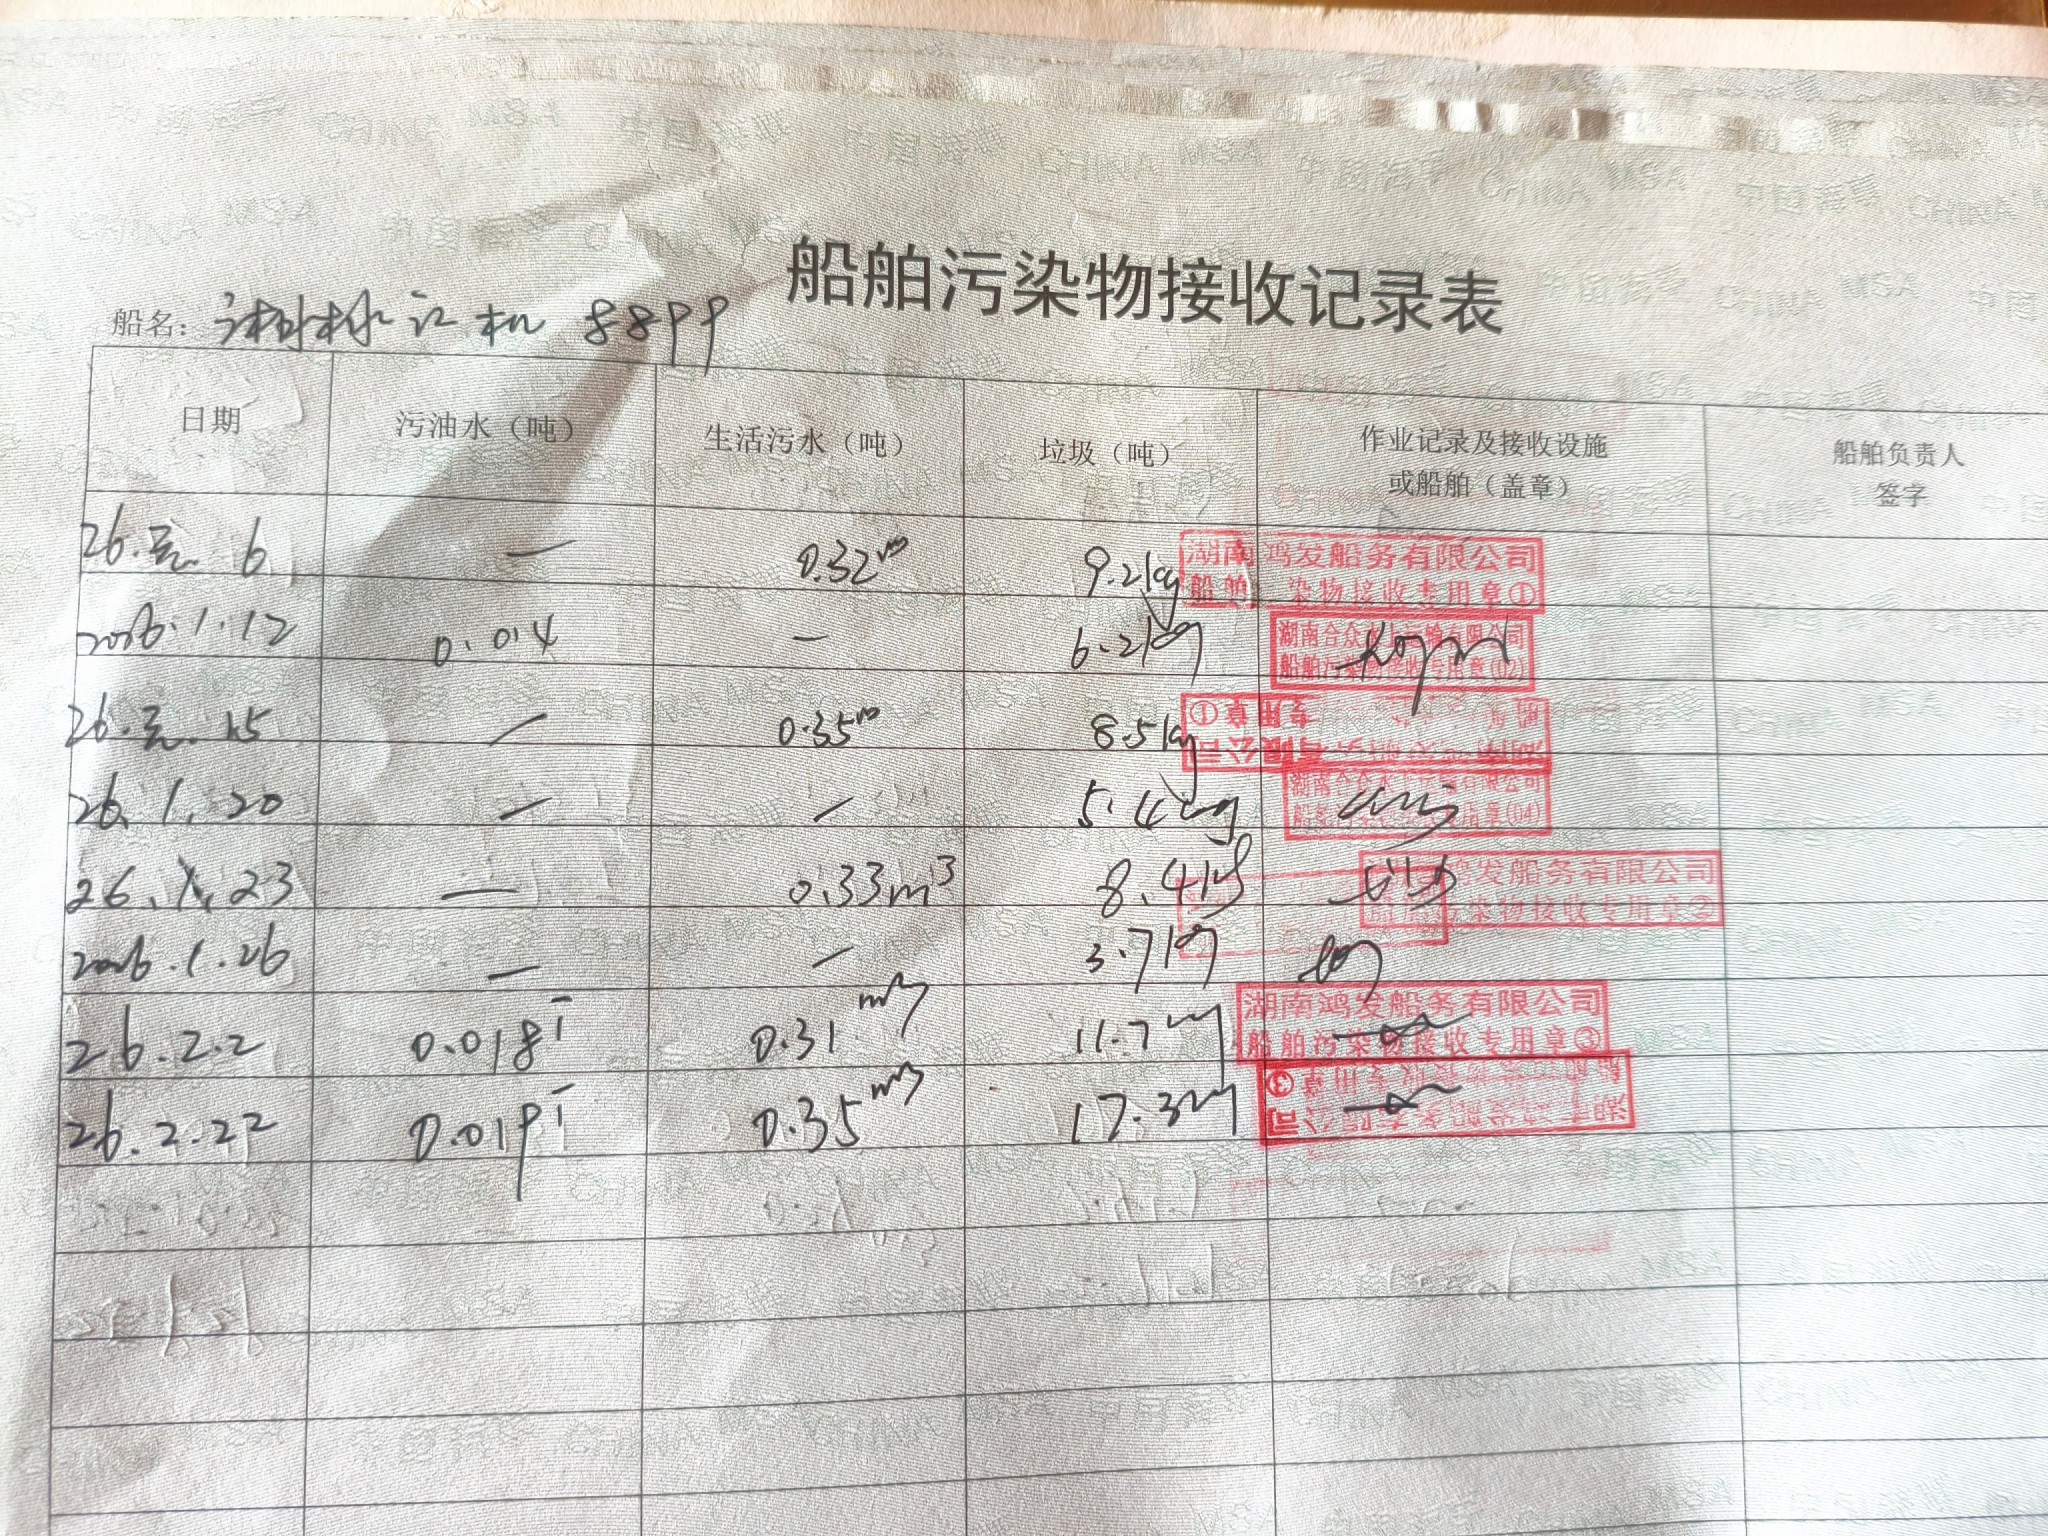 船舶污染物接收记录表
船名: 湘桃江机 8899
日期 污油水（吨） 生活污水（吨） 垃圾（吨） 作业记录及接收设施或船舶（盖章） 船舶负责人签字
26.元.6 — 0.32m 9.2kg 湖南鸿发船务有限公司 船舶 染物接收专用章①
2026.1.12 0.014 — 6.2kg 湖南合众水上运输有限公司 船舶污染物接收专用章(02)
26.元.15 — 0.35m 8.5kg 专用章① 有限公司 湖南
26.1.20 — — 5.4kg 湖南合众 有限公司 专用章(04)
26.1.23 — 0.33m³ 8.4kg 鸿发船务有限公司 污染物接收专用章②
2026.1.26 — — 3.7kg
26.2.2 0.018T 0.31m³ 11.7kg 湖南鸿发船务有限公司 船舶污染物接收专用章③
26.2.22 0.019T 0.35m³ 17.3kg 章③ 公司